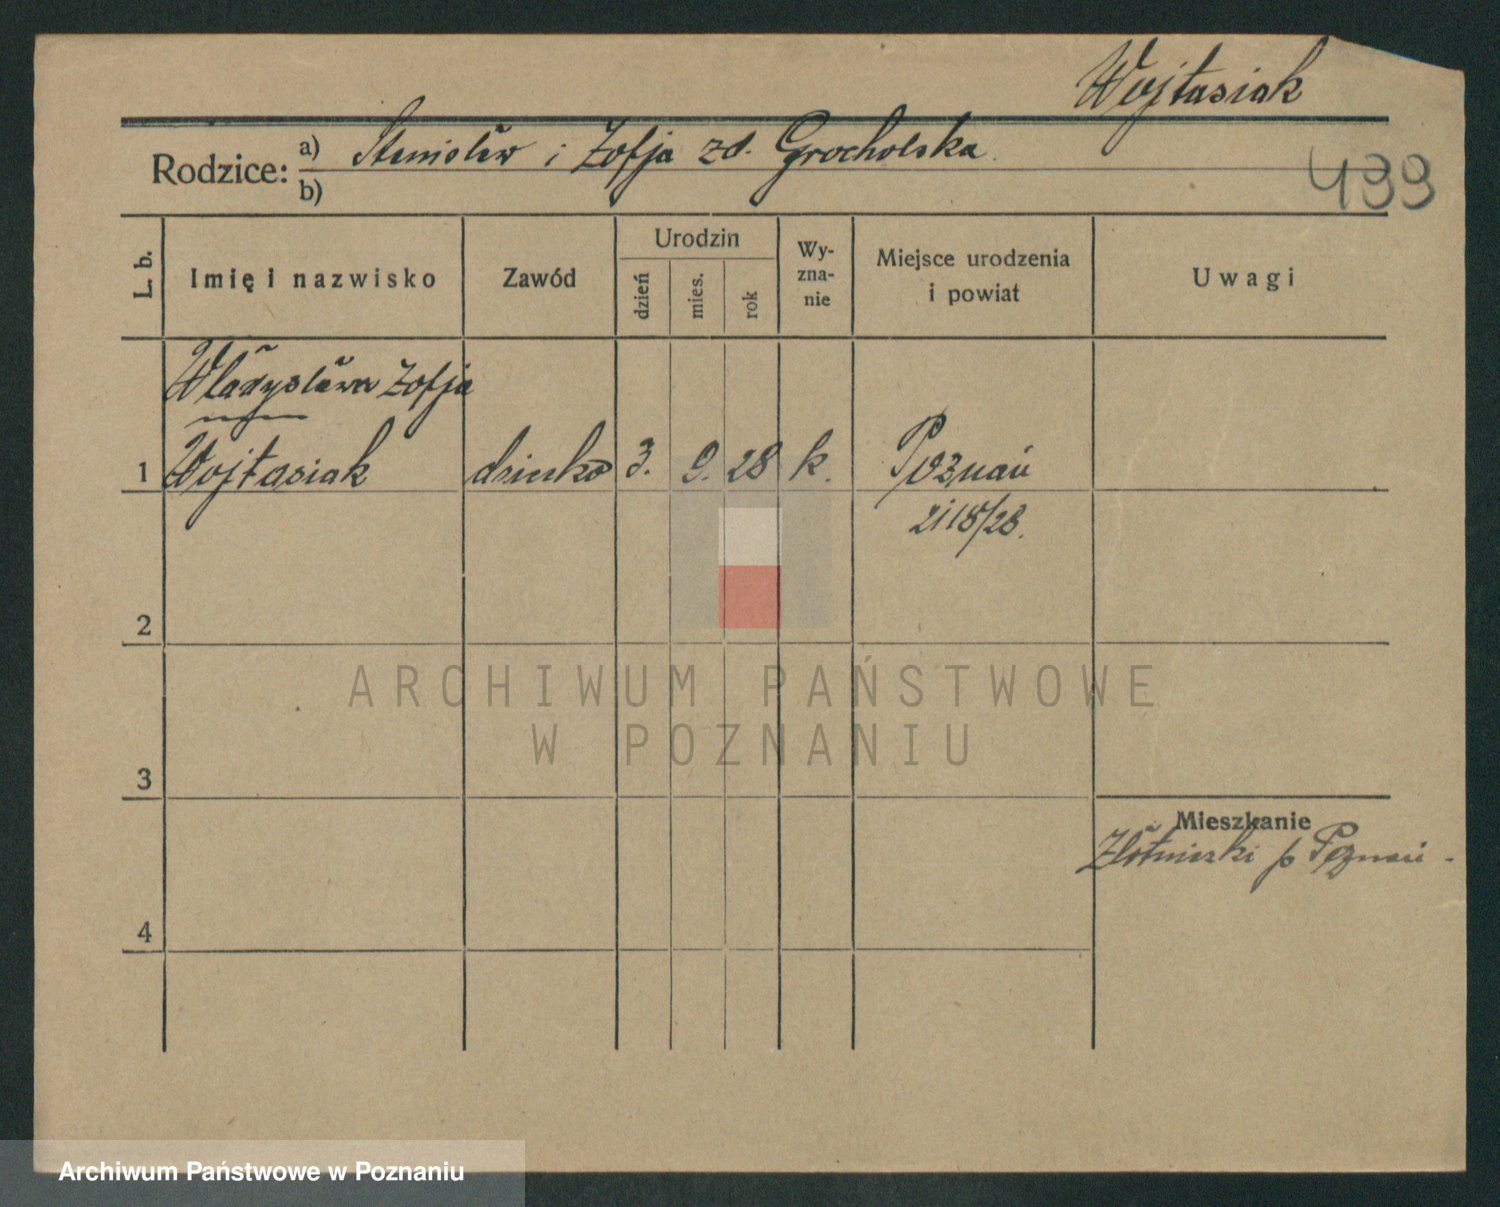 Wojtasiak
Rodzice: a) Stanisław i Zofja zd. Grocholska
b)
499
L. b.
Imię i nazwisko
Zawód
Urodzin
dzień
mies.
rok
Wy-
zna-
nie
Miejsce urodzenia
i powiat
Uwagi
Władysława Zofja
1 Wojtasiak dziecko 3. 9. 28 k. Poznań
2118/28.
2
ARCHIWUM PAŃSTWOWE
W POZNANIU
3
Mieszkanie
Złotniczki p Poznań
4
Archiwum Państwowe w Poznaniu